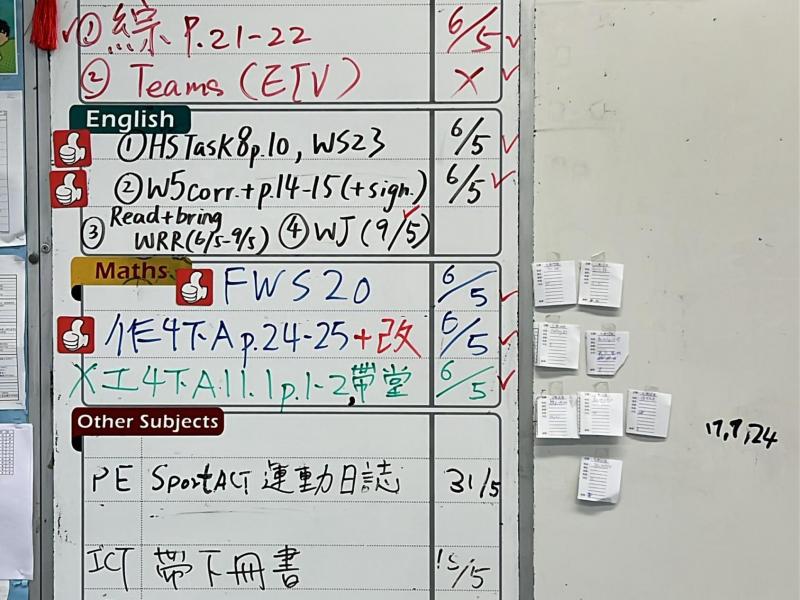 ① 綜 P.21-22 6/5 ✓
② Teams (ETV) X ✓
English
① HS Task 8 p.10, WS23 6/5 ✓
② W5 corr. + p.14-15 (+ sign.) 6/5 ✓
③ Read + bring WRR (6/5-9/5) ④ WJ (9/5) ✓
Maths
FWS20 6/5 ✓
作4下A p.24-25 + 改 6/5 ✓
X 工4下A 11.1 p.1-2, 帶堂 6/5 ✓
Other Subjects
PE SportACT 運動日誌 31/5
ICT 帶下冊書 15/5
17,9,24